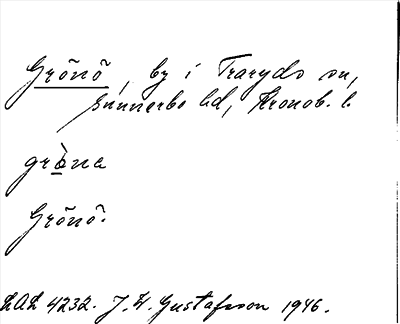 Grönö, by i Traryds sn,
Sunnerbo hd, Kronob. l.
gròna
Grönö.
LAL 4232. J. W. Gustafsson 1946.